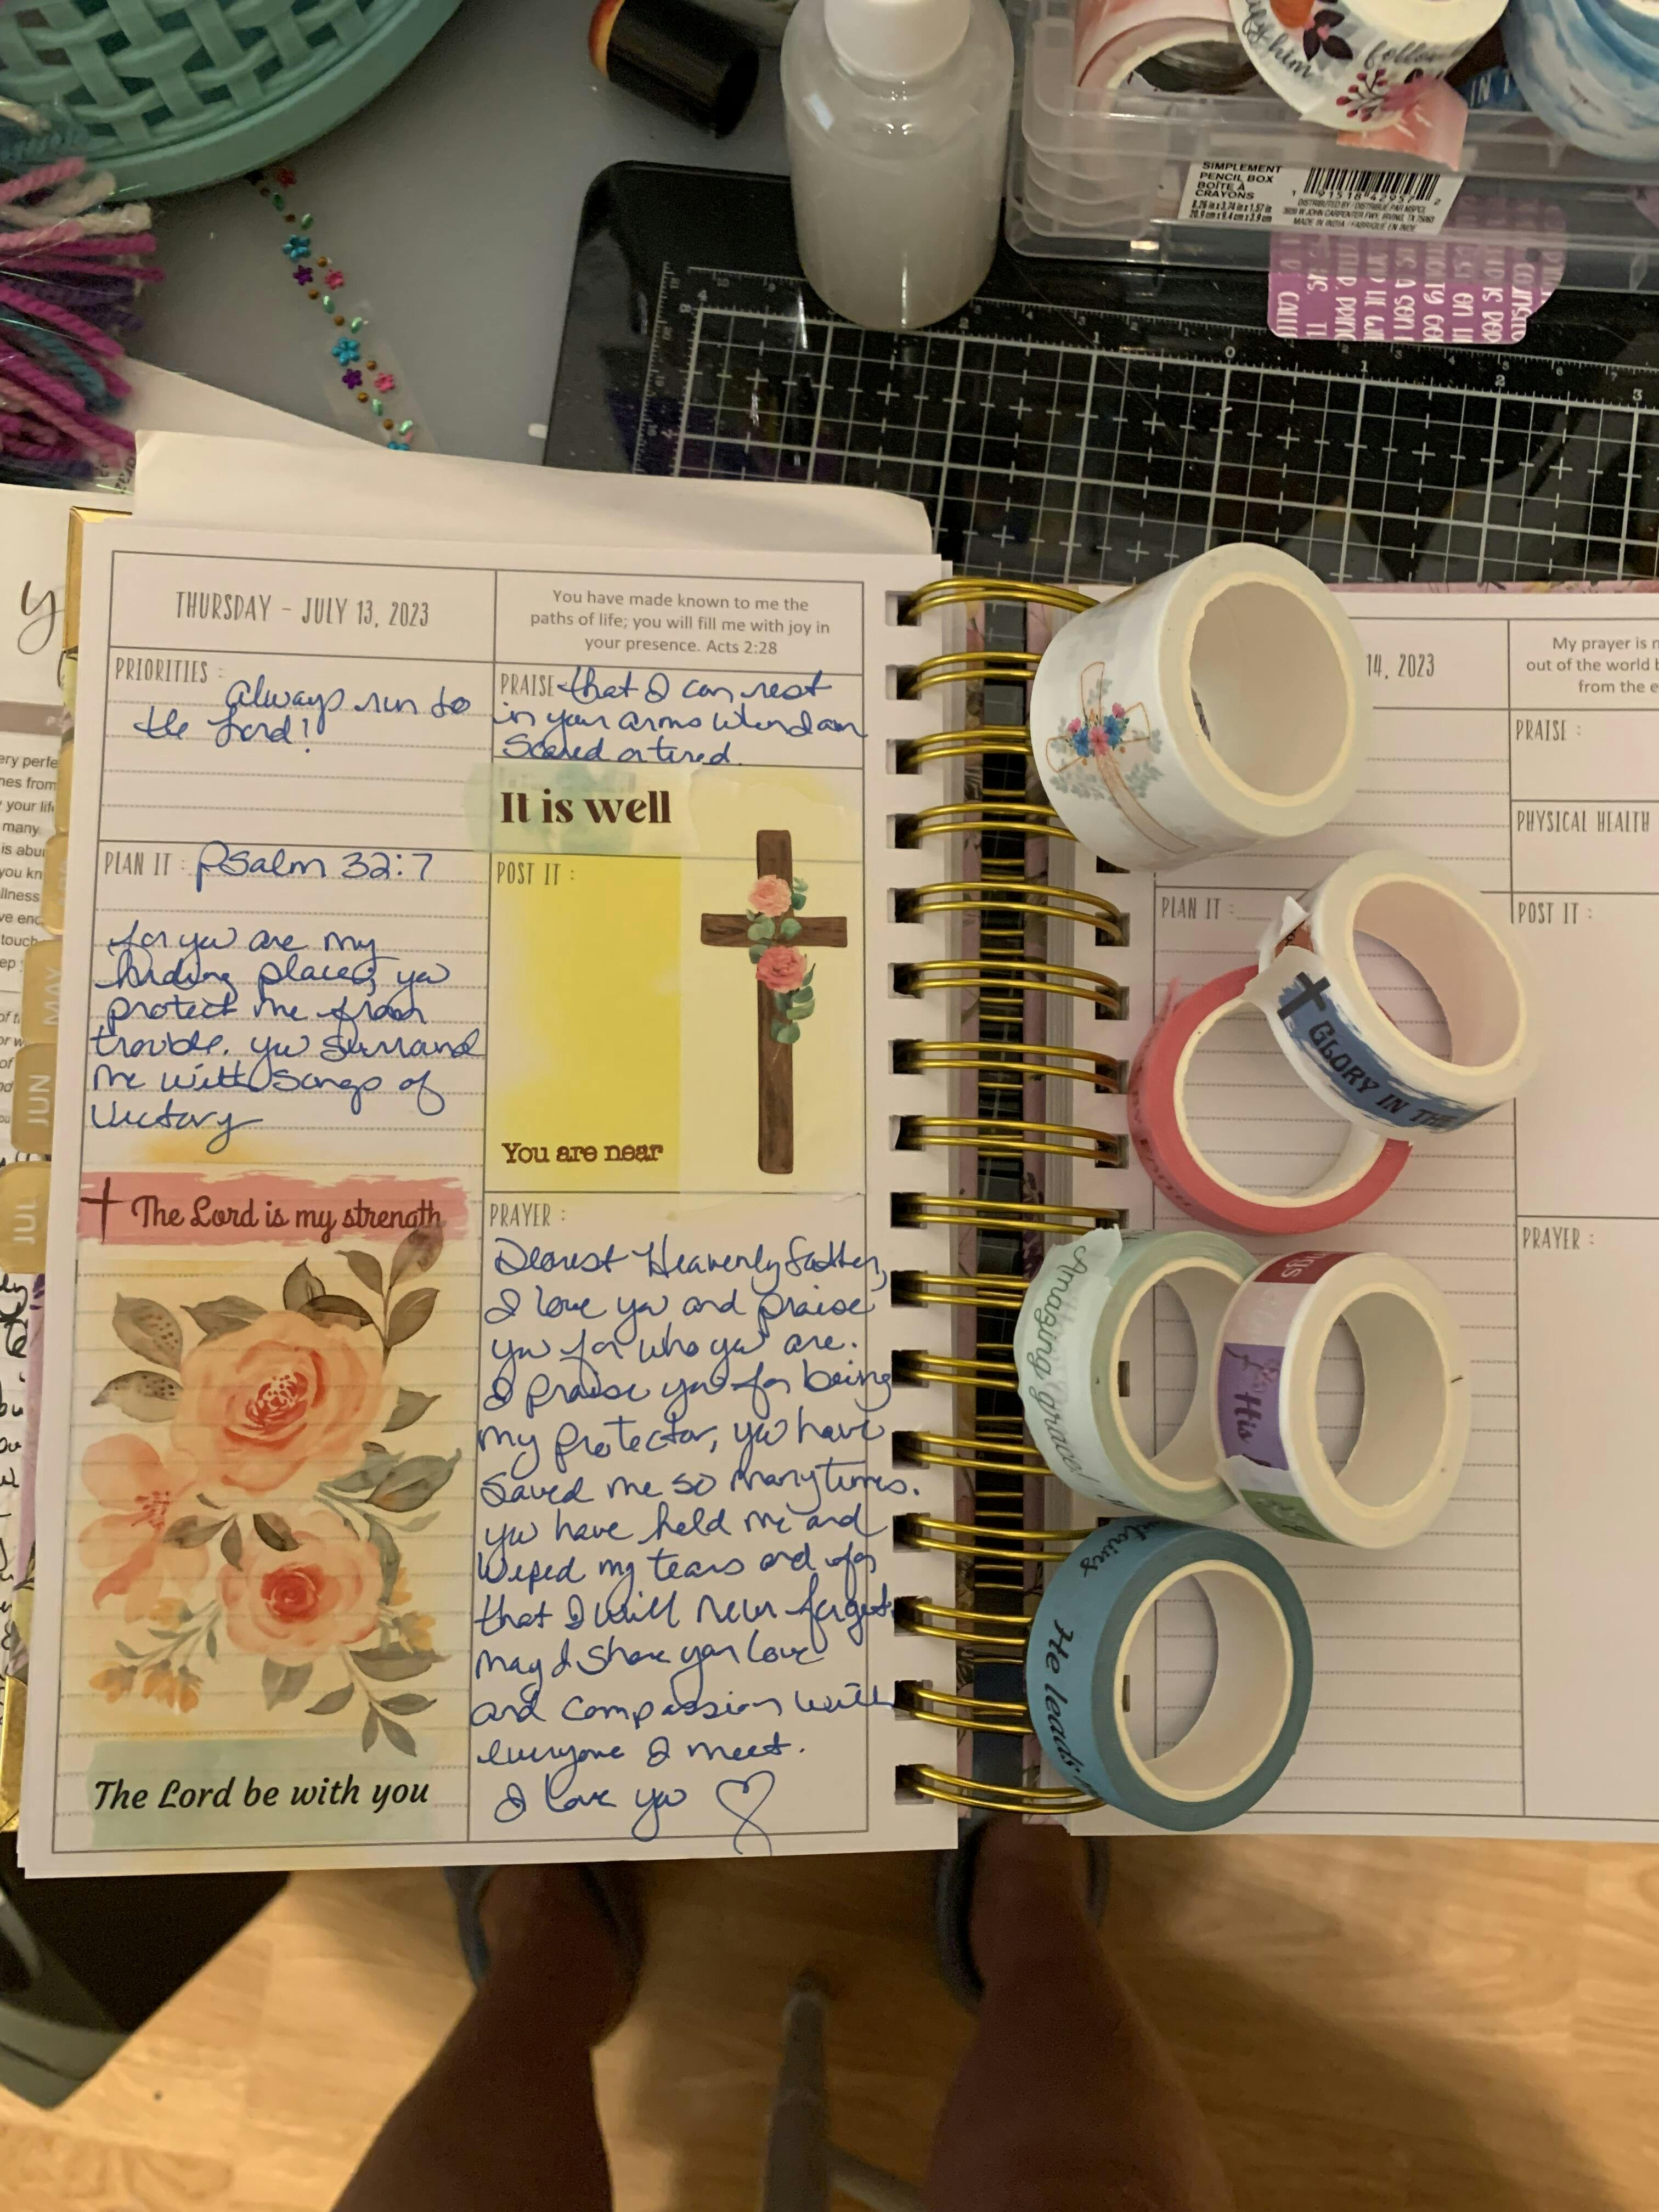 follow
him
SIMPLEMENT
PENCIL BOX
BOÎTE À
CRAYONS
8.26 in x 3.74 in x 1.57 in
20.9 cm x 9.4 cm x 3.9 cm
1 91518 42957 2
DISTRIBUTED BY / DISTRIBUÉ PAR MSPCI,
MADE IN INDIA / FABRIQUÉ EN INDE
THURSDAY - JULY 13, 2023
You have made known to me the
paths of life; you will fill me with joy in
your presence. Acts 2:28
PRIORITIES :
always run to
the Lord!
PRAISE that I can rest
in your arms when I am
scared or tired.
It is well
PLAN IT : Psalm 32:7
for you are my
hiding place; you
protect me from
trouble. you surround
me with songs of
victory
POST IT :
You are near
The Lord is my strength
The Lord be with you
PRAYER :
Dearest Heavenly Father,
I love you and praise
you for who you are.
I praise you for being
my protector, you have
saved me so many times.
you have held me and
wiped my tears and for
that I will never forget.
may I share your love
and compassion with
everyone I meet.
I love you
MAY
JUN
JUL
14, 2023
My prayer is
out of the world
from the
PRAISE :
PHYSICAL HEALTH
PLAN IT :
POST IT :
PRAYER :
GLORY IN THE
Amazing grace!
His
He leads